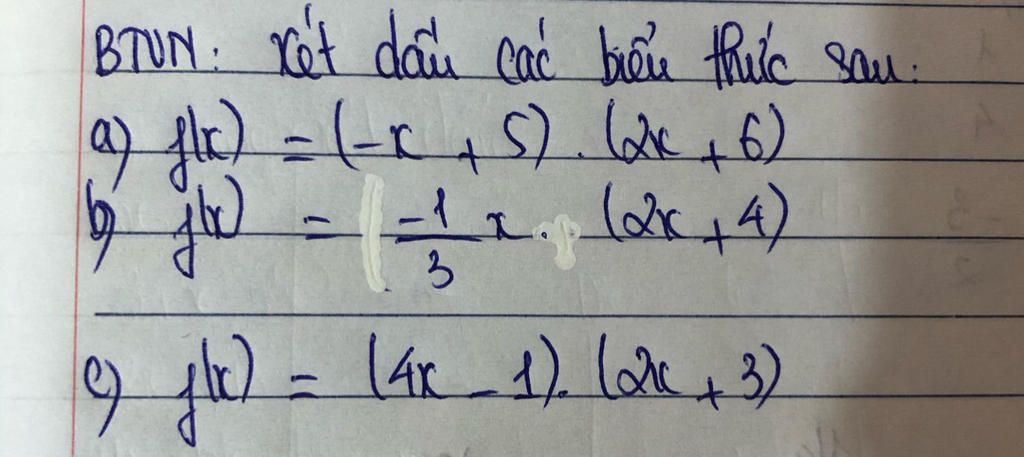 BTVN: Xét dấu các biểu thức sau:
a) f(x) = (-x + 5) . (2x + 6)
b) f(x) = -1/3 x . (2x + 4)
c) f(x) = (4x - 1). (2x + 3)